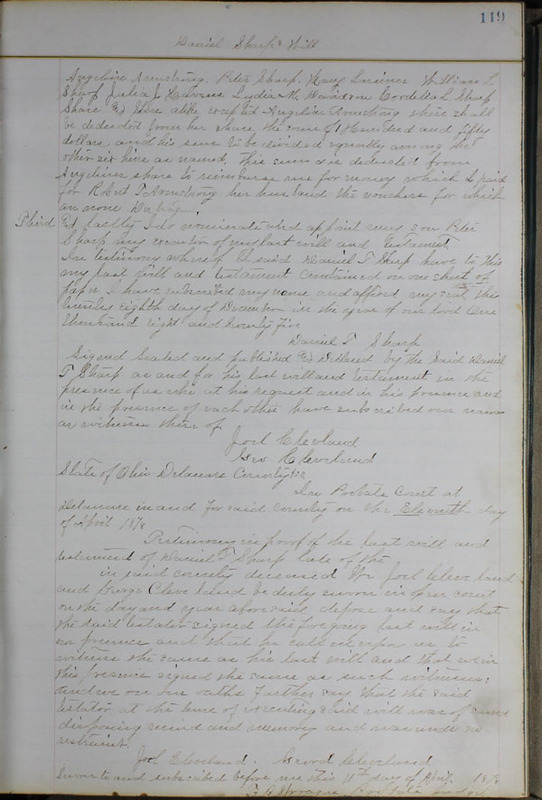 119
Daniel Sharps Will
Angeline Armstrong. Peter Sharp. Mary William L
Sharp Julia J Lydia M Davidson Cordelia L Sharp
Share & Share alike except Angeline Armstrong where shall
be deducted from her share the sum of Hundred and fifty
dollars and his sum to be divided equally among the
other six heirs as named, this sum is deducted from
Angelines share to reimburse me for money which I paid
for Robert T Armstrong her husband the vouchers for which
are now
Third & lastly I do nominate and appoint my son Peter
Sharp my executor of my last will and testament
In testimony whereof I said Daniel T Sharp have to this
my last will and testament contained on one sheet of
paper I have subscribed my name and affixed my seal this
twenty eighth day of December in the year of our Lord One
thousand eight and Seventy Five
Daniel T Sharp
Signed Sealed and published & declared by the said Daniel
T Sharp as and for his last will and testament in the
presence of us who at his request and in his presence and
in the presence of each other have subscribed our names
as witness there of
Joel Cleveland
Geo Cleveland
State of Ohio Delaware County ss
In Probate Court at
Delaware in and for said County on the Eleventh day
of April 187
Testimony in proof of the last will and
testament of Daniel T Sharp late of the
in said county deceased We Joel Cleveland
and George Cleveland being duly sworn in open court
on the day and year aforesaid depose and say that
the said testator signed the foregoing last will in
our presence and that he called upon us to
witness the same as his last will and that we in
his presence signed the same as such witnesses;
and we on our oaths further say that the said
testator at the time of executing said will was of sound
disposing mind and memory and was under no
restraint.
Joel Cleveland. Cleveland
Sworn to and subscribed before me this 11th day of April 187
Sprague Probate Judge